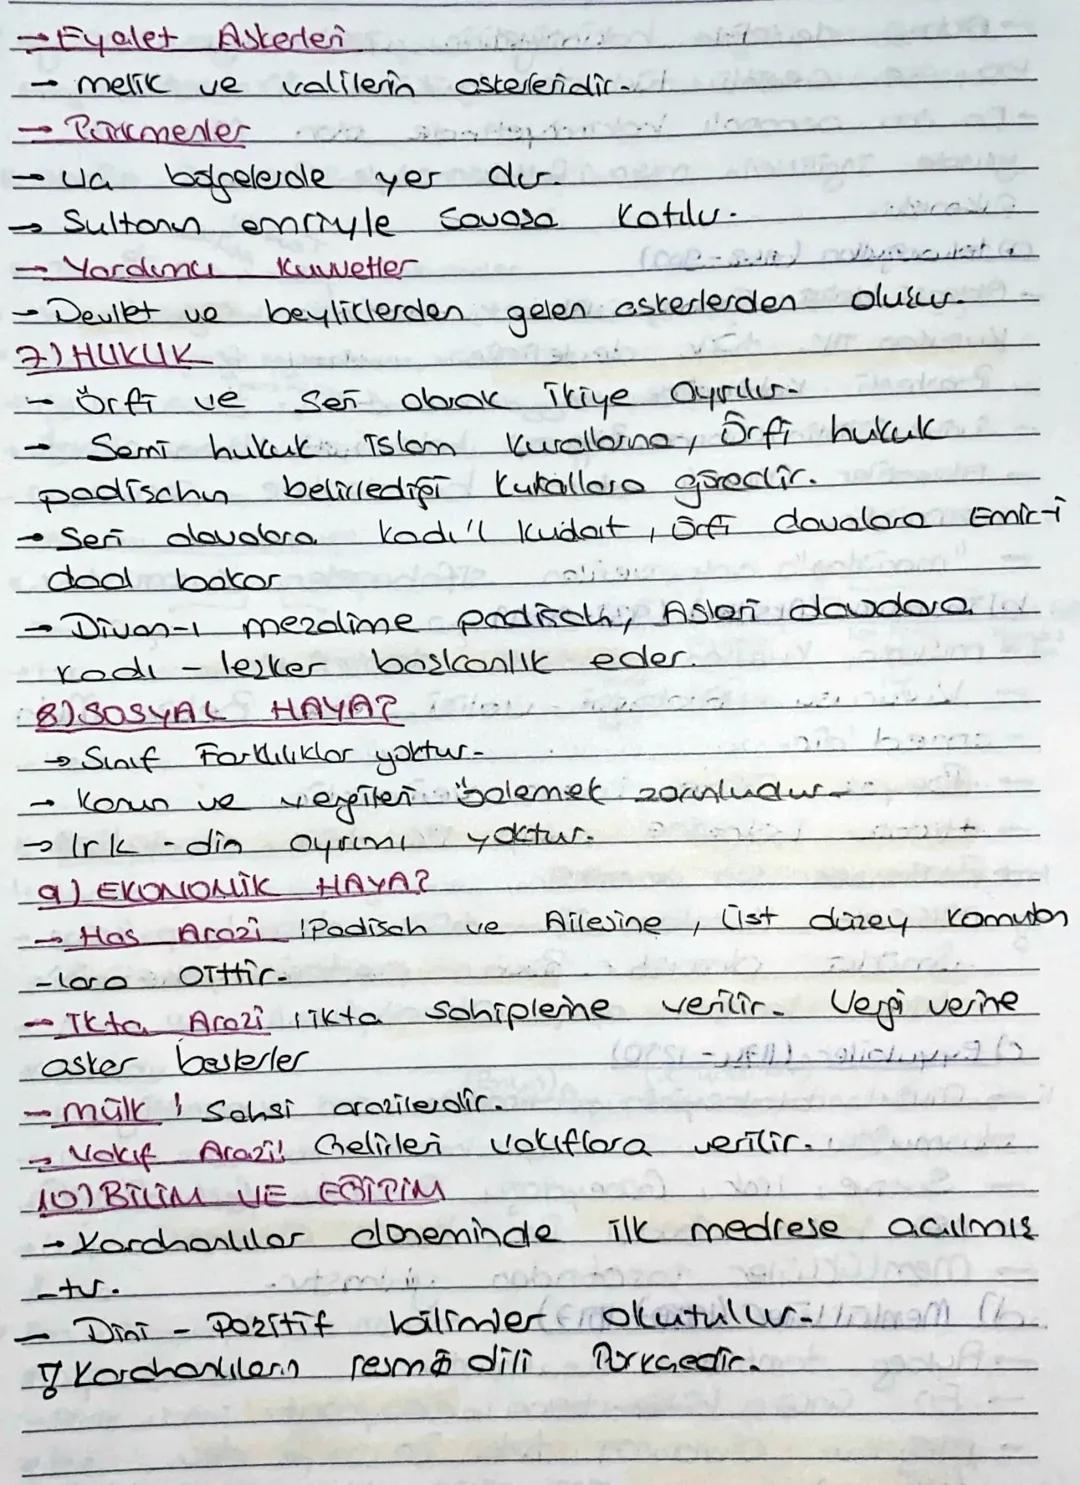 → Eyalet Askerleri
→ melik ve valilerin askerleridir.
→ Türkmenler
→ Uç bölgelerde yer alır.
→ Sultanın emriyle savaşa katılır.
→ Yardımcı Kuvvetler
→ Devlet ve beyliklerden gelen askerlerden oluşur.
7) HUKUK
- Örfi ve Şeri olarak ikiye ayrılır.
- Şemi hukuk islam kurallarına, Örfi hukuk
padişahın belirlediği kukallara göredir.
→ Şeri davalara kadı'l kudat, Örfi davalara Emir-i
dad bakar
→ Divan-ı mezalime padişah, Askeri davalara
kadı - leşker başkanlık eder.
8) SOSYAL HAYAT
→ Sınıf Farklılıklar yoktur.
→ Kanun ve vergileri ödemek zorunludur.
→ Irk - din ayrımı yoktur.
9) EKONOMİK HAYAT
→ Has Arazi : Padişah ve Ailesine, üst düzey komutan
-lara aittir.
→ İkta Arazi : ikta sahiplerine verilir. Vergi yerine
asker beslerler
→ mülk : Şahsi arazilerdir.
→ Vakıf Arazi : Gelirleri vakıflara verilir.
10) BİLİM VE EĞİTİM
→ Karahanlılar döneminde ilk medrese açılmış
-tır.
- Dini - Pozitif bilimler okutulur.
Karahanlıların resmi dili Türkçedir.